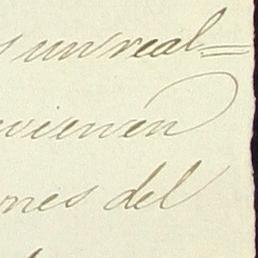 s un real=
vienen
nes del